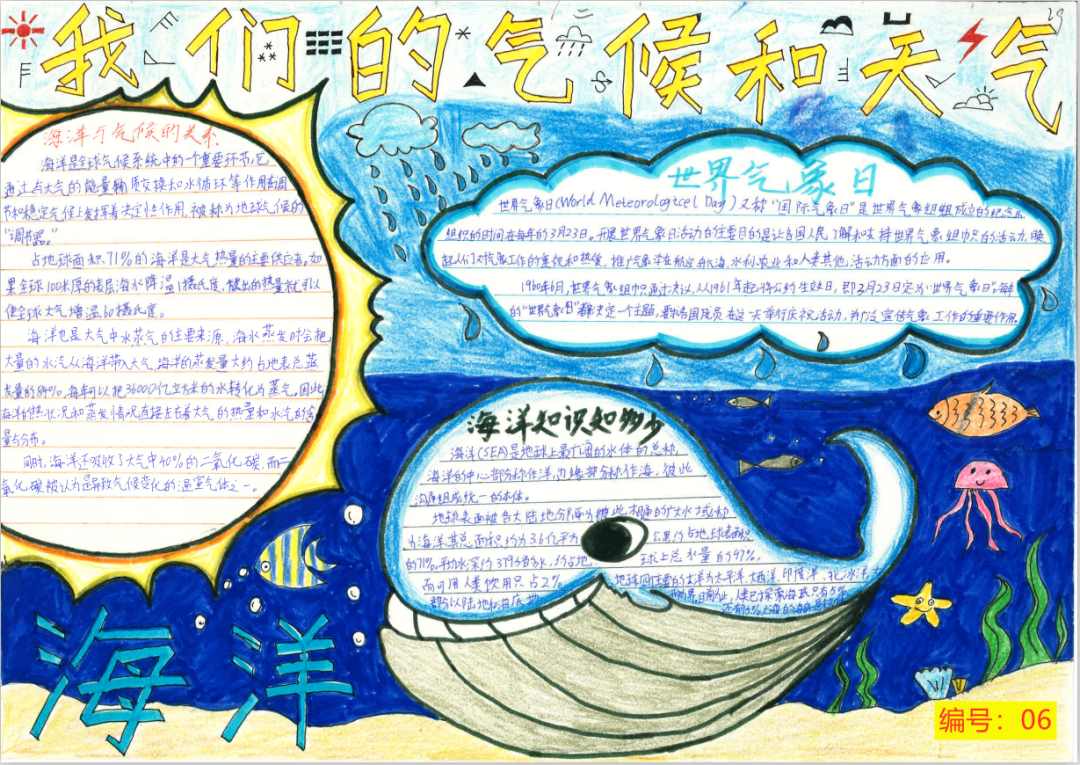 我们的气候和天气
海洋于气候的关系
海洋是全球气候系统中的一个重要环节,它
通过与大气的能量物质交换和水循环等作用在调
节和稳定气候上发挥着决定性作用,被称为地球气候的
"调节器。"
占地球面积71%的海洋是大气热量的主要供应者。如
果全球100米厚的表层海水降温1摄氏度,放出的热量就可以
使全球大气增温60摄氏度。
海洋也是大气中水蒸气的主要来源,海水蒸发时会把
大量的水汽从海洋带入大气,海洋的蒸发量大约占地表总蒸
发量的84%,每年可以把36000亿立方米的水转化为蒸气。因此
海洋的热状况和蒸发情况直接左右着大气的热量和水汽的含
量与分布。
同时,海洋还吸收了大气中40%的二氧化碳,而二
氧化碳被认为是导致气候变化的温室气体之一。
世界气象日
世界气象日(World Meteorologicel Day)又称"国际气象日"是世界气象组织成立的纪念日
组织的时间在每年的3月23日。开展世界气象日活动的主要目的是让各国人民了解和支持世界气象组织的活动,唤
起人们对气象工作的重视和热爱,推广气象学在航空航海,水利,农业和人类其他活动方面的应用。
1960年6月,世界气象组织通过决议,从1961年起将公约生效日,即3月23日定为"世界气象日"每年
的"世界气象日"都选定一个主题,要求各国成员在这一天举行庆祝活动,并广泛宣传气象工作的重要作用。
海洋知识知多少
海洋(SEA)是地球上最广阔的水体的总称,
海洋的中心部分称作洋,边缘部分称作海,彼此
沟通组成统一的水体。
地球表面被各大陆地分隔为彼此相通的广大水域称
为海洋,其总面积约为3.6亿平方公里,约占地球表面积
的71%,平均水深约3795米,约占地球上总水量的97%,
而可用人类饮用只占2%。地球四个主要的大洋为太平洋,大西洋,印度洋,北冰洋,大
部分以陆地和海底地
海洋
编号:06